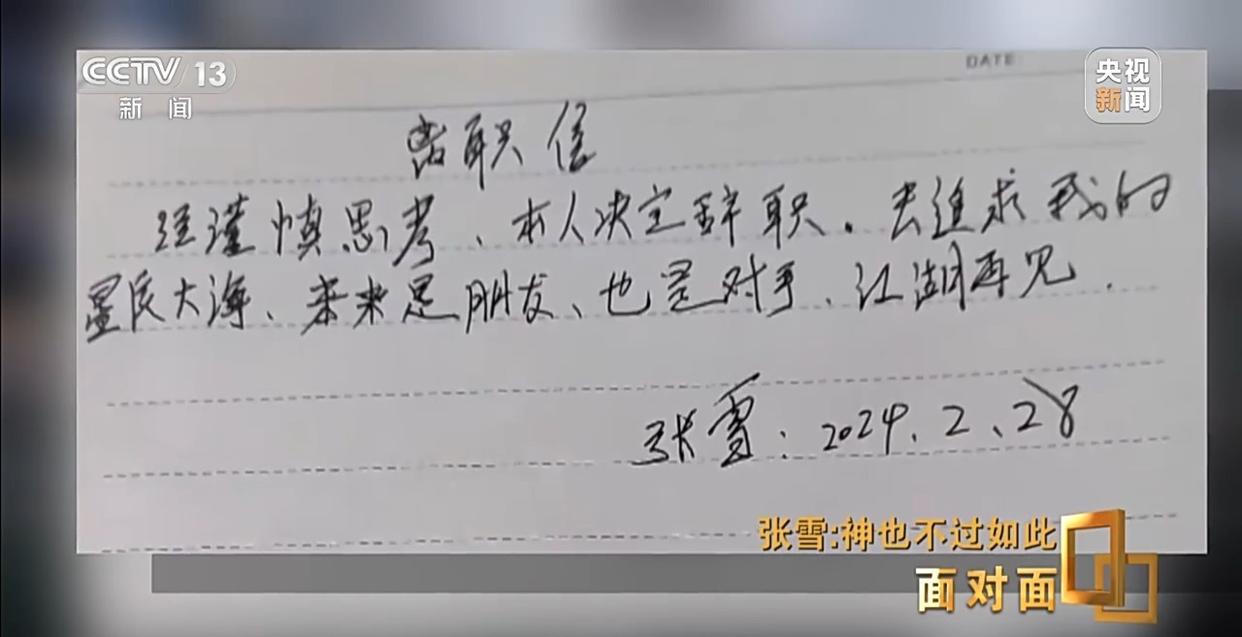 CCTV 13
新闻
央视
新闻
DATE
离职信
经谨慎思考、本人决定辞职。去追求我的
星辰大海、未来是朋友、也是对手、江湖再见.
张雪:2024.2.28
张雪:神也不过如此
面对面